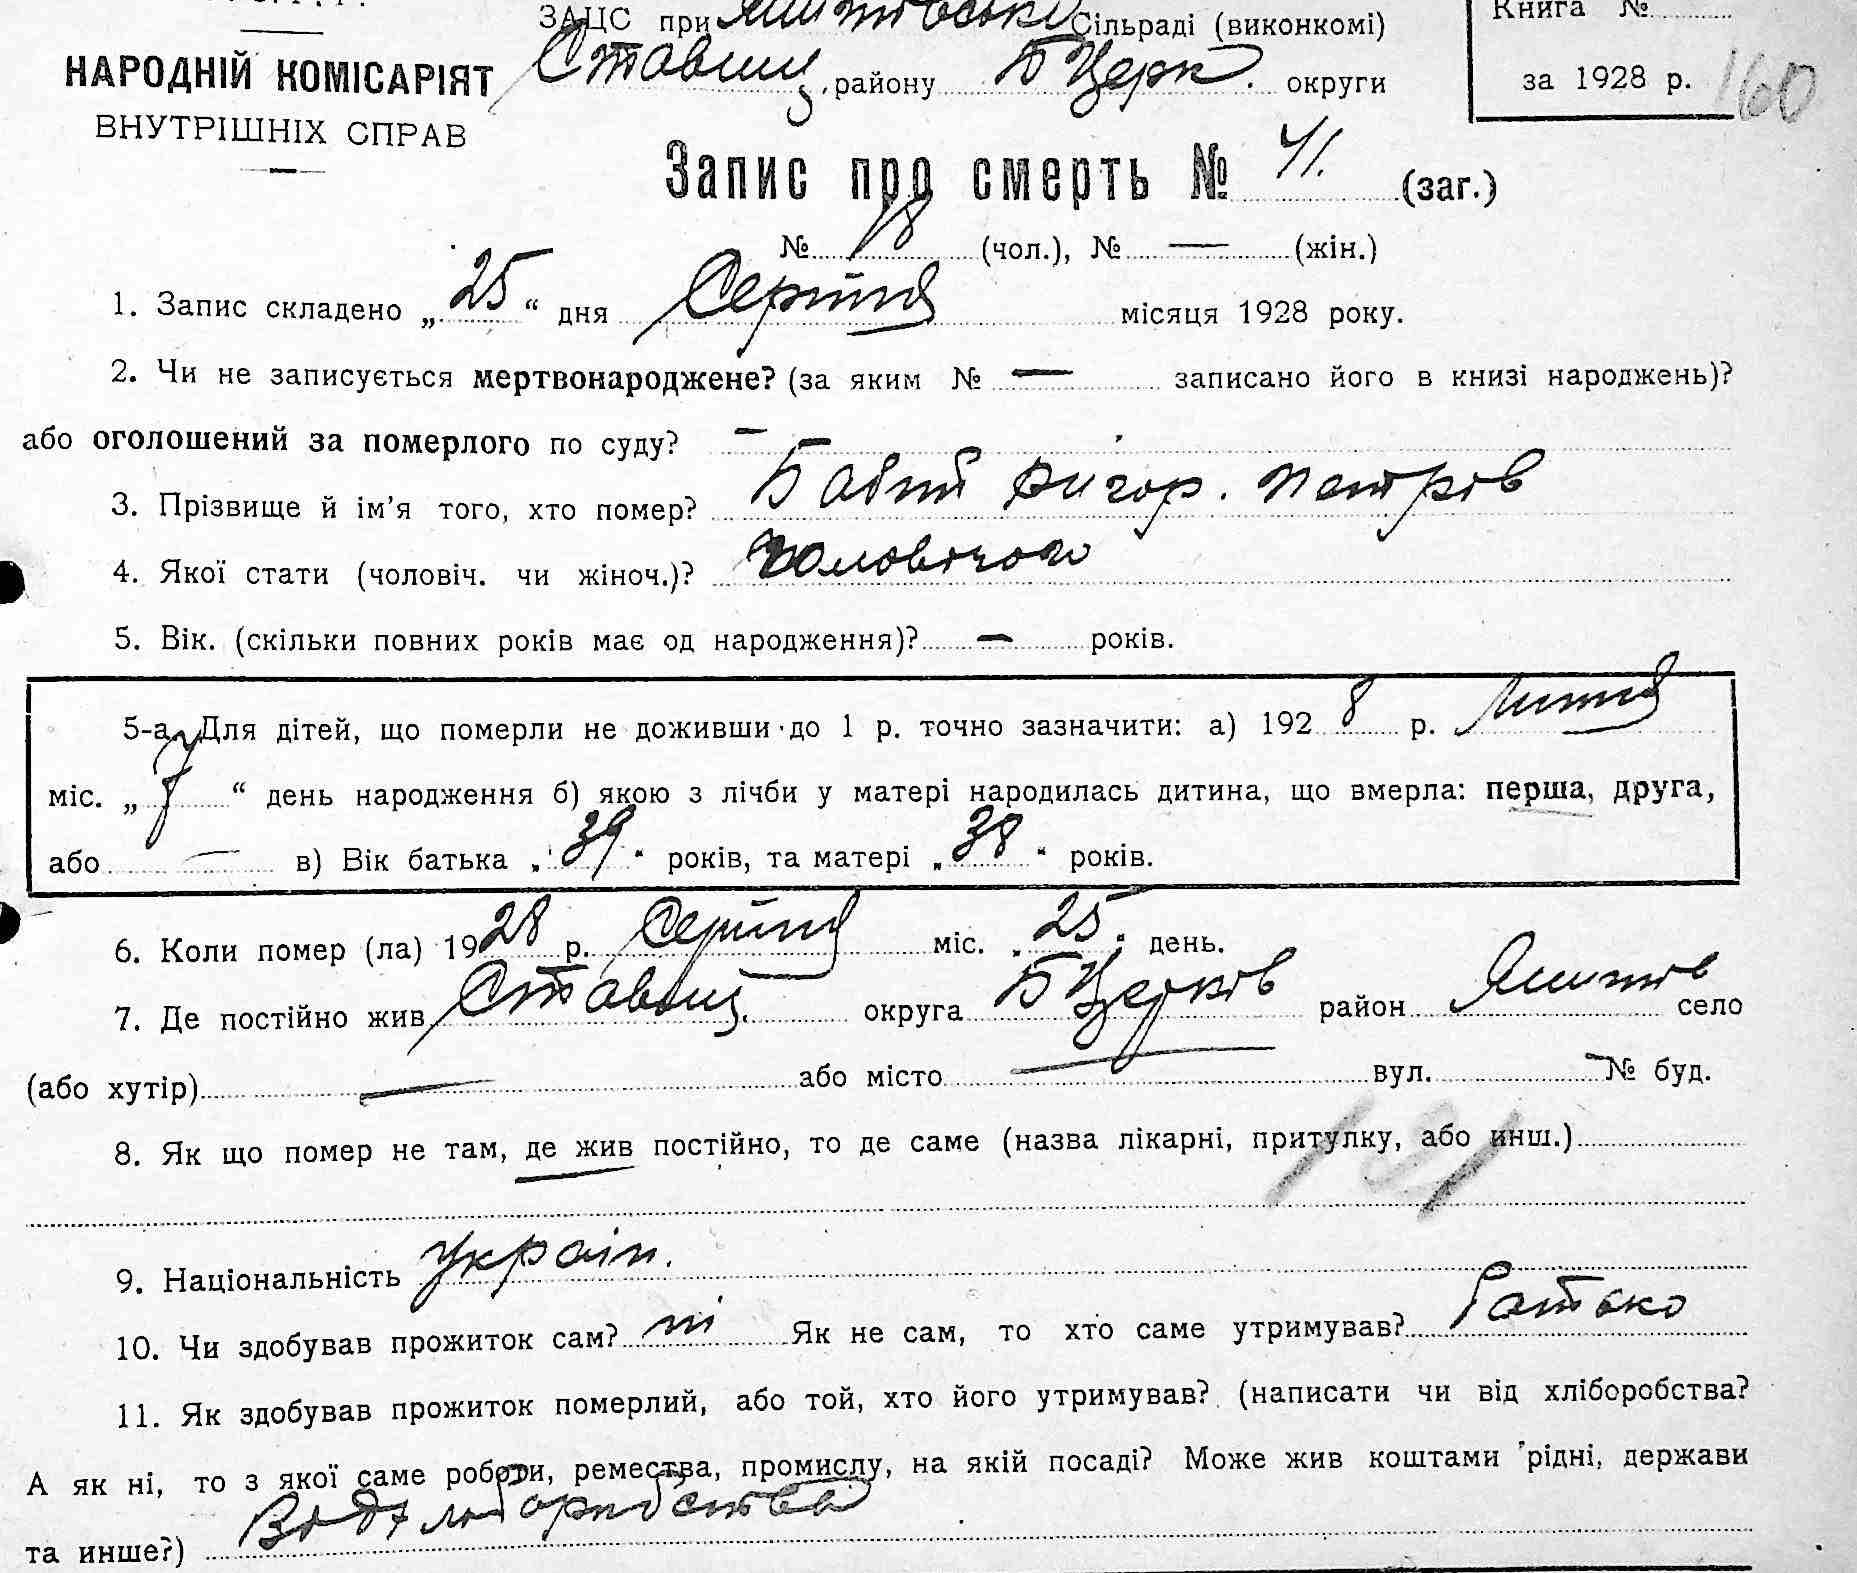 ЗАЦС при Сільраді (виконкомі)
Книга №
НАРОДНІЙ КОМІСАРІЯТ
Ставищ. району Б Церк. округи
за 1928 р. 160
ВНУТРІШНІХ СПРАВ
Запис про смерть № 41. (заг.)
№ 18 (чол.), № — (жін.)
1. Запис складено „25“ дня Серпня місяця 1928 року.
2. Чи не записується мертвонароджене? (за яким № — записано його в книзі народжень)?
або оголошений за померлого по суду? —
3. Прізвище й ім'я того, хто помер? Григор. Петров
4. Якої стати (чоловіч. чи жіноч.)? Чоловічого
5. Вік. (скільки повних років має од народження)? — років.
5-а. Для дітей, що померли не доживши до 1 р. точно зазначити: а) 1928 р. Липня
міс. „7“ день народження б) якою з лічби у матері народилась дитина, що вмерла: перша, друга,
або — в) Вік батька „39“ років, та матері „38“ років.
6. Коли помер (ла) 1928 р. Серпня міс. „25“ день.
7. Де постійно жив Ставищ. округа Б Церков район село
(або хутір) — або місто — вул. — № буд.
8. Як що помер не там, де жив постійно, то де саме (назва лікарні, притулку, або инш.)
9. Національність Україн.
10. Чи здобував прожиток сам? ні Як не сам, то хто саме утримував? Батько
11. Як здобував прожиток померлий, або той, хто його утримував? (написати чи від хліборобства?
А як ні, то з якої саме роботи, ремества, промислу, на якій посаді? Може жив коштами рідні, держави
та инше?) Від хліборобства